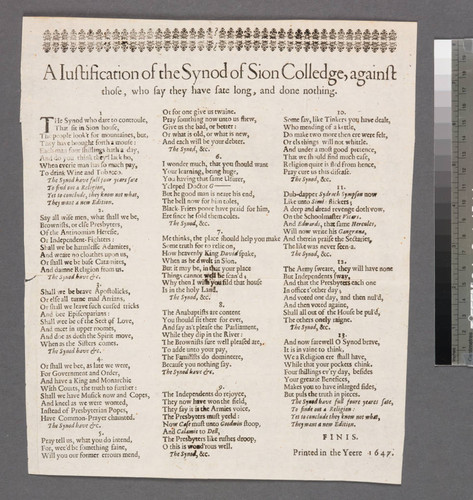 A Iustification of the Synod of Sion Colledge, against
those, who say they have sate long, and done nothing.
1.
THe Synod who dare to controule,
That sit in Sion house,
The people look't for mountaines, but,
They have brought forth a mouse:
Each man foure shillings hath a day,
And do you think they'l lack ho,
When every man has so much pay,
To drink Wine and Tobacco.
The Synod have full foure years sate
To find out a Religion,
Yet to conclude, they know not what,
They want a new Edition.
2.
Say all wise men, what shall we be,
Brownists, or else Presbyters,
Of the Antinomian Heresie,
Or Independent-Fighters:
Shall we be harmlesse Adamites,
And weare no cloathes upon us,
Or shall we be base Catarinites,
And damne Religion from us.
The Synod have &c.
3.
Shall we be brave Apostolicks,
Or else all turne mad Arrians,
Or shall we have such cursed tricks
And bee Episcoparians:
Shall wee be of the Sect of Love,
And meet in upper roomes,
And doe as doth the Spirit move,
When as the Sisters comes.
The Synod have &c.
4.
Or shall we bee, as late we were,
For Government and Order,
And have a King and Monarchie
With Courts, the truth to further:
Shall we have Musick now and Copes,
And kneel as we were wonted,
Instead of Presbyterian Popes,
Have Common-Prayer chaunted.
The Synod have &c.
5.
Pray tell us, what you do intend,
For, wee'd be something faine,
Will you our former errours mend,
Or for one give us twaine.
Pray something now unto us shew,
Give us the bad, or better:
Or what is old, or what is new,
And each will be your debter.
The Synod, &c.
6.
I wonder much, that you should want
Your learning, being huge,
You having that same
Ycleped Doctor G——
But he good man is neare his end,
The bell now for him toles,
Black Friers poore have paid for him,
Ere since he sold them coles.
The Synod, &c.
7.
Me thinks, the place should help you make
Some truth for to relie on,
How heavenly King David spake,
When as he dwelt in Sion.
But it may be, in that your place
Things cannot well be scan'd;
Why then I wish you sold that house
Is in the holy Land.
The Synod, &c.
8.
The Anabaptists are content
You should sit there for ever
And say as't please the Parliament,
While they dip in the River:
The Brownists sare well pleased are,
To adde unto your pay,
The Familists do domineere,
Because you nothing say.
The Synod have &c.
9.
The Independents do rejoyce,
They now have won the field,
They say it is the Armies voice,
The Presbyters must yeeld:
Now Case must unto Goodwin stoop,
And Calamie to Dell,
The Presbyters like rushes droop,
O this is wondrous well.
The Synod, &c.
10.
Some say, like Tinkers you have dealt,
Who mending of a kettle,
Do make two more then ere were felt,
Or els things will not whistle.
And under a most good pretence,
That we should find much ease,
Religion quite is fled from hence,
Pray cure us this disease.
The Synod, &c.
11.
Dob-dapper Sydrach Sympson now
Like unto Simi: flickers;
A deep and dread revenge doth vow,
On the Schoolmaster Vicars.
And Edwards, that same Hercules,
Will now write his Gangrene,
And therein praise the Sectaries,
The like was never seen-a.
The Synod, &c.
12.
The Army sweare, they will have none
But Independents sway,
And that the Presbyters each one
In office t'other day;
And voted one day, and then null'd,
And then voted againe,
Shall all out of the House be pul'd,
The others onely raigne.
The Synod, &c.
13.
And now farewell O Synod brave,
It is in vaine to think,
Wee a Religion ere shall have,
While that your pockets chink.
Four shillings every day, besides
Your greatest Benefices,
Makes you to have inlarged sides,
But puls the truth in pieces.
The Synod have full foure yeares sate,
To finde out a Religion:
Yet to conclude they know not what,
They want a new Edition.
FINIS.
Printed in the Yeere 1647.